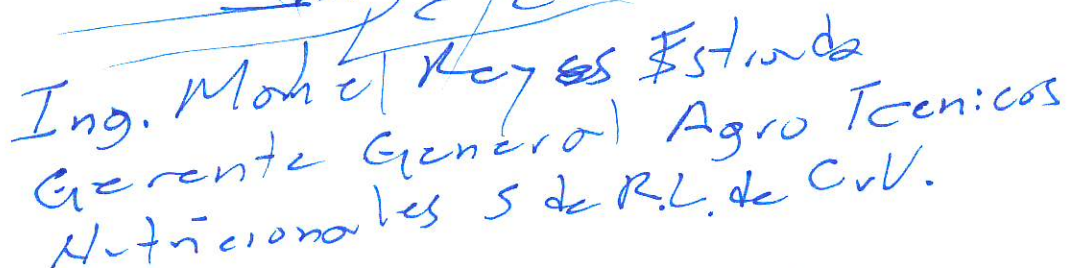 Ing. Manuel Reyes Estrada
Gerente General Agro Tecnicos
Nutricionales S de R.L. de C.V.